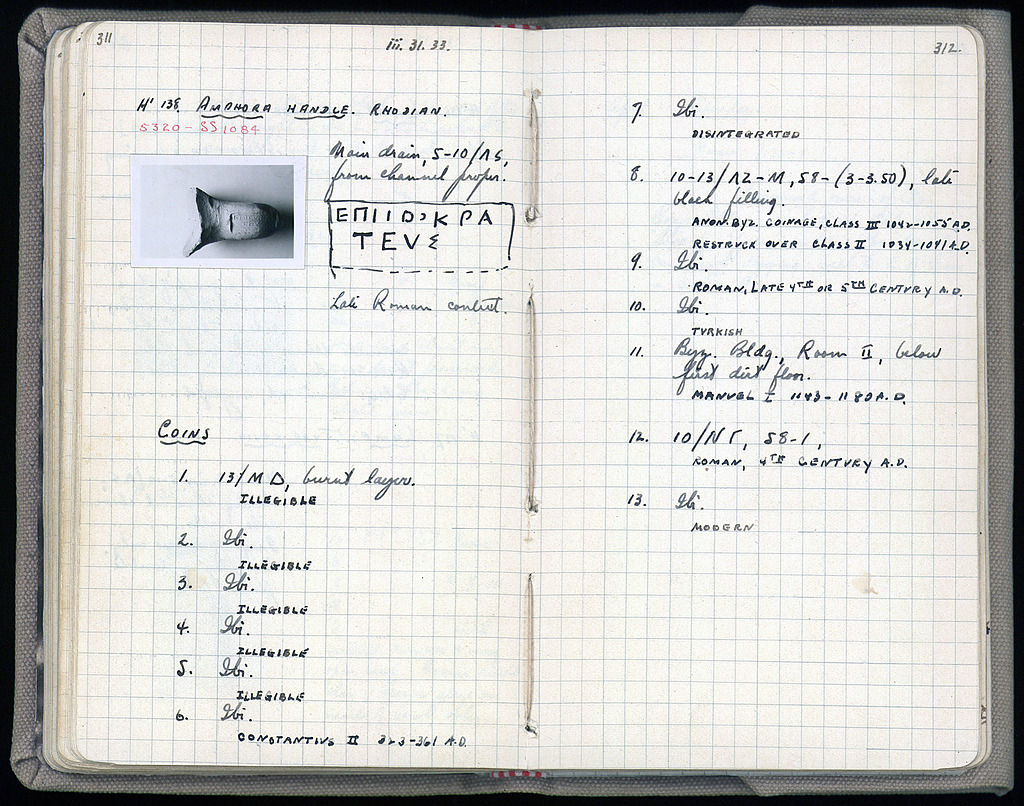 311
iii. 31. 33.
H' 138. AMPHORA HANDLE. RHODIAN.
5320 - SS 1084
Main drain, 5-10/ΛΣ,
from channel proper.
ΕΠΙΙΟΣΚΡΑ
ΤΕΥΣ
Late Roman context.
COINS
1. 13/ΜΔ, burnt layer.
ILLEGIBLE
2. Ibi.
ILLEGIBLE
3. Ibi.
ILLEGIBLE
4. Ibi.
ILLEGIBLE
5. Ibi.
ILLEGIBLE
6. Ibi.
CONSTANTIVS II 323-361 A.D.
312.
7. Ibi.
DISINTEGRATED
8. 10-13/ΛΖ-Μ, 58-(3-3.50), late
black filling.
ANON. BYZ. COINAGE, CLASS III 1042-1055 A.D.
RESTRUCK OVER CLASS II 1034-1041 A.D
9. Ibi.
ROMAN, LATE 4TH OR 5TH CENTURY A.D.
10. Ibi.
TVRKISH
11. Byz. Bldg., Room II, below
first dirt floor.
MANVEL I 1143-1180 A.D.
12. 10/ΝΓ, 58-1,
ROMAN, 4TH CENTVRY A.D.
13. Ibi.
MODERN